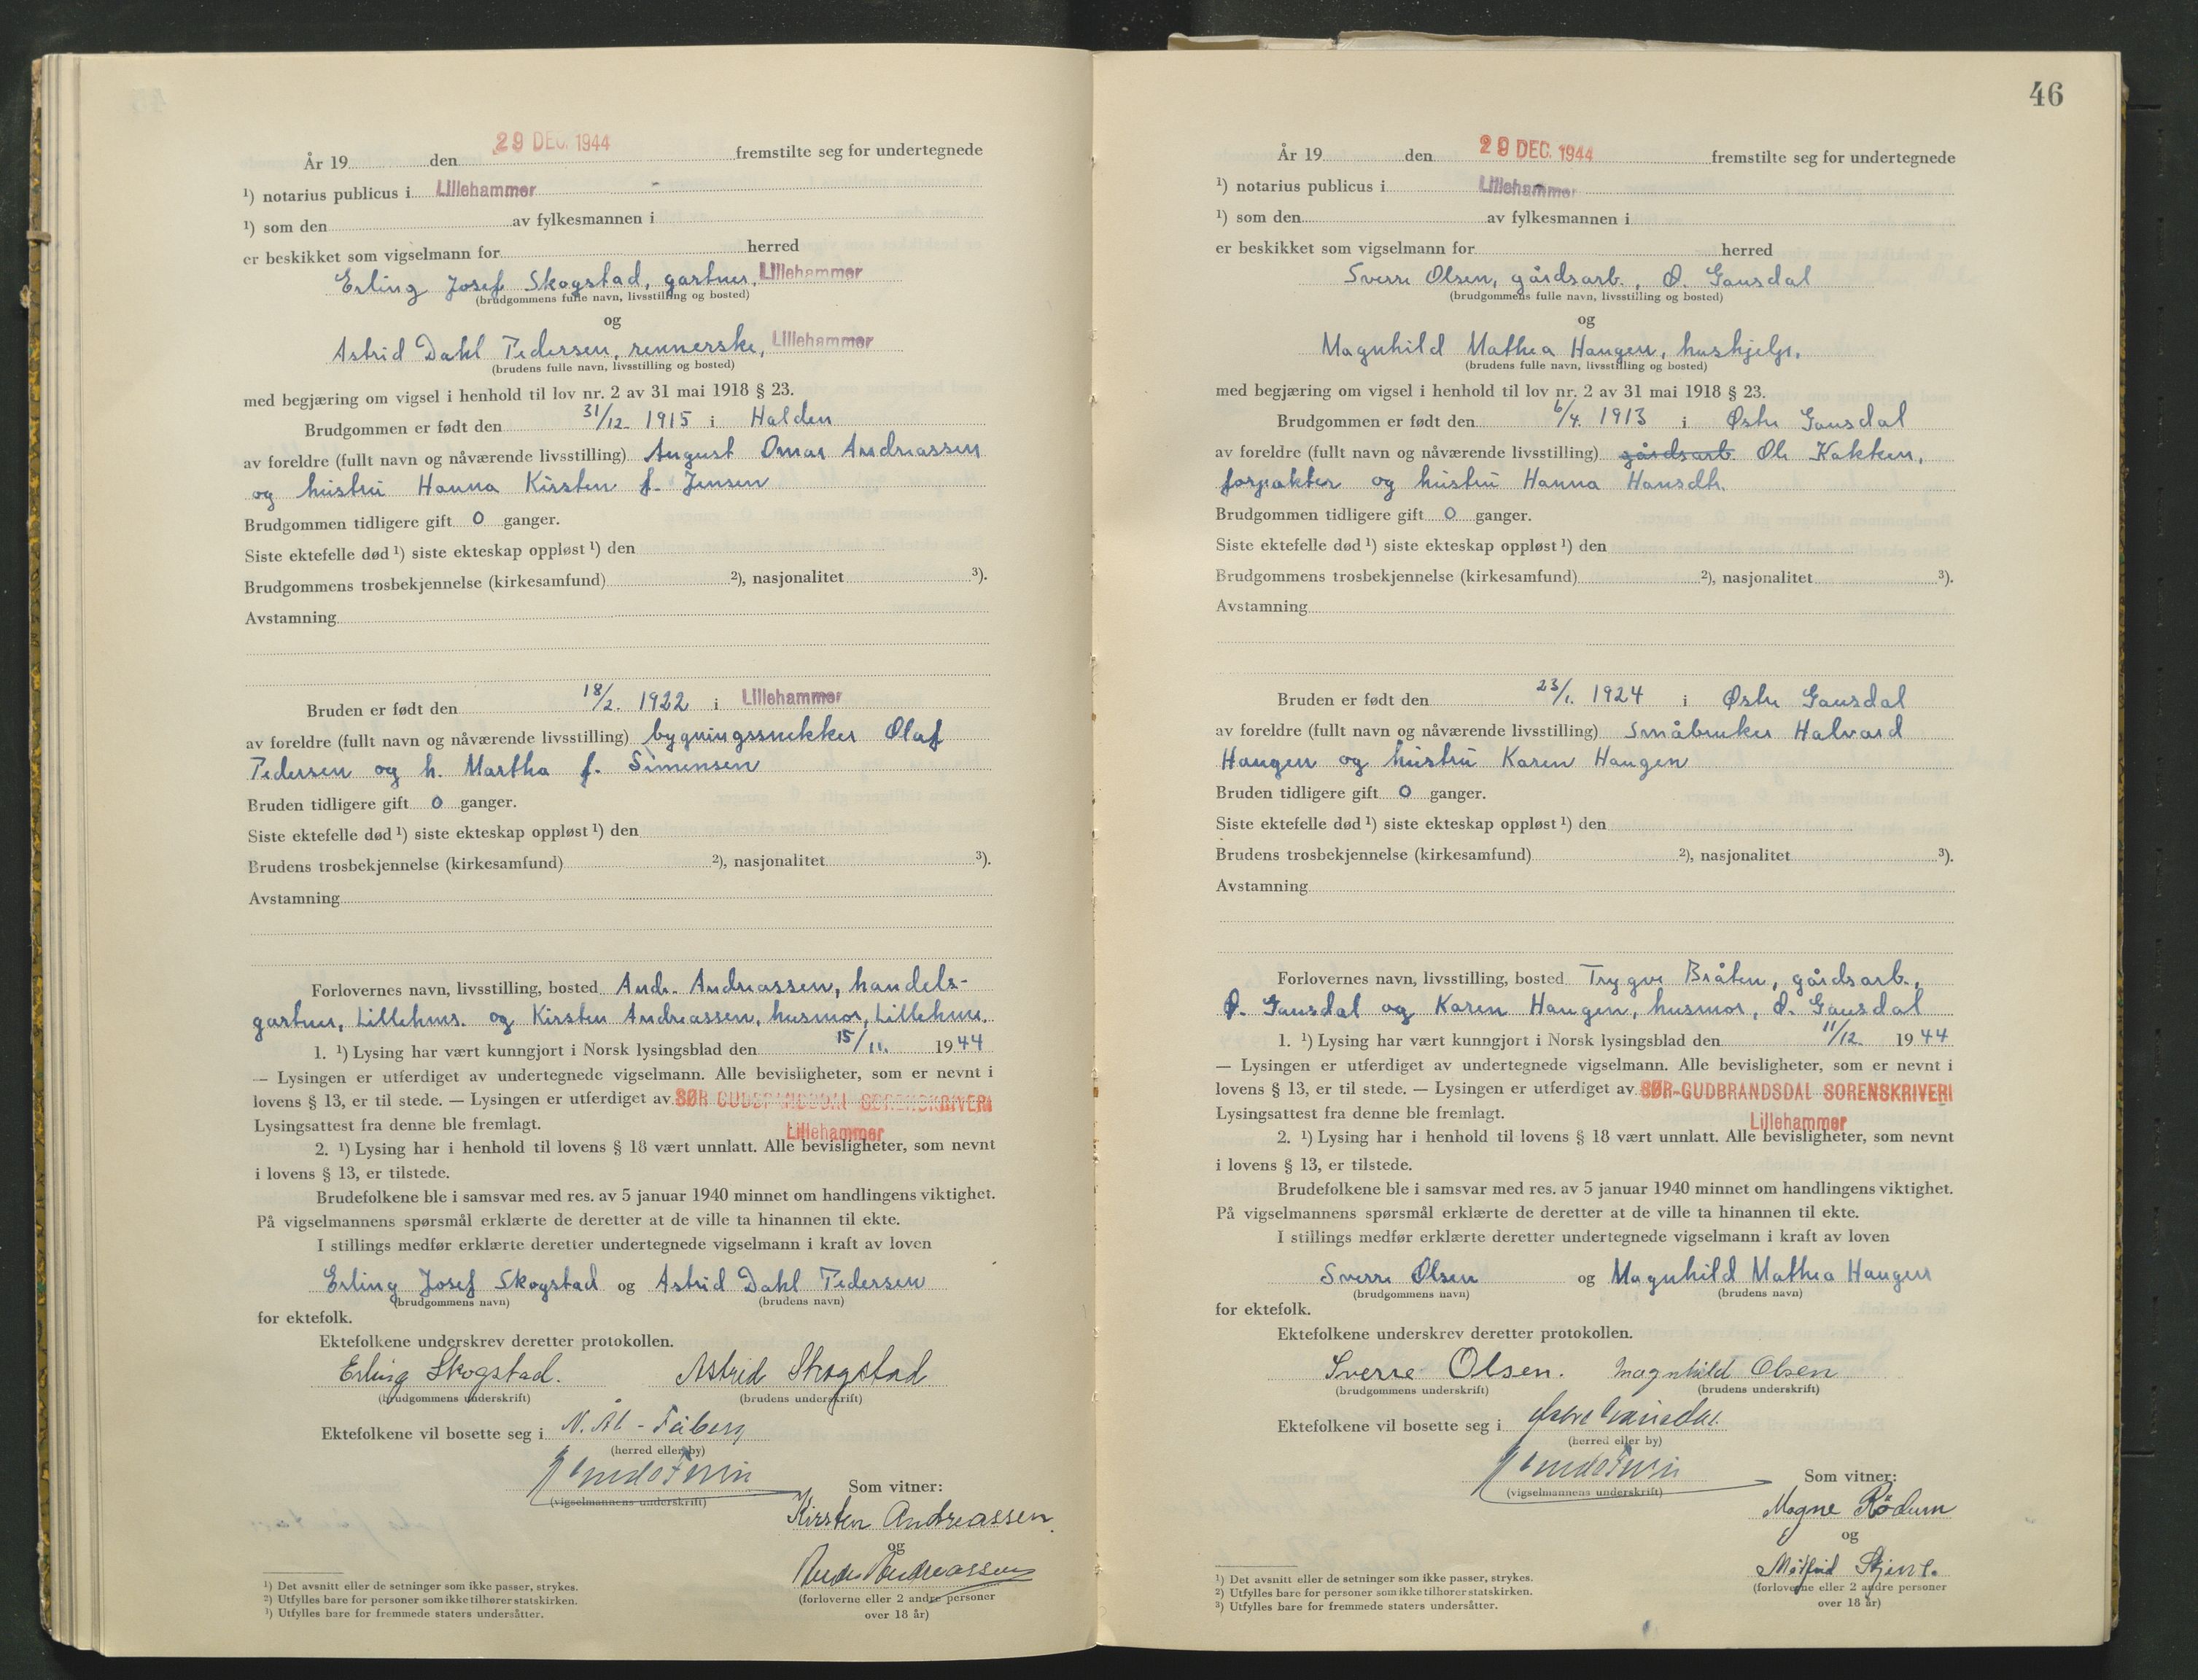 År 19 den 29 DEC. 1944 fremstilte seg for undertegnede
¹) notarius publicus i Lillehammer
¹) som den av fylkesmannen i
er beskikket som vigselmann for herred
Erling Josef Skogstad, gartner, Lillehammer
(brudgommens fulle navn, livsstilling og bosted)
og
Astrid Dahl Pedersen, rennerske, Lillehammer
(brudens fulle navn, livsstilling og bosted)
med begjæring om vigsel i henhold til lov nr. 2 av 31 mai 1918 § 23.
Brudgommen er født den 31/12. 1915 i Halden
av foreldre (fullt navn og nåværende livsstilling) August Omar Andreassen
og hustru Hanna Kirsten f. Jensen
Brudgommen tidligere gift 0 ganger.
Siste ektefelle død ¹) siste ekteskap oppløst ¹) den
Brudgommens trosbekjennelse (kirkesamfund) ²), nasjonalitet ³).
Avstamning
Bruden er født den 18/2. 1922 i Lillehammer
av foreldre (fullt navn og nåværende livsstilling) bygningssnekker Olaf
Pedersen og h. Martha f. Simensen
Bruden tidligere gift 0 ganger.
Siste ektefelle død ¹) siste ekteskap oppløst ¹) den
Brudens trosbekjennelse (kirkesamfund) ²), nasjonalitet ³).
Avstamning
Forlovernes navn, livsstilling, bosted Andr. Andreassen, handels-
gartner, Lillehmr. og Kirsten Andreassen, husmor, Lillehmr.
1. ¹) Lysing har vært kunngjort i Norsk lysingsblad den 15/11. 1944
— Lysingen er utferdiget av undertegnede vigselmann. Alle bevisligheter, som er nevnt i
lovens § 13, er til stede. — Lysingen er utferdiget av SØR-GUDBRANDSDAL SORENSKRIVERI
Lysingsattest fra denne ble fremlagt. Lillehammer
2. ¹) Lysing har i henhold til lovens § 18 vært unnlatt. Alle bevisligheter, som nevnt
i lovens § 13, er tilstede.
Brudefolkene ble i samsvar med res. av 5 januar 1940 minnet om handlingens viktighet.
På vigselmannens spørsmål erklærte de deretter at de ville ta hinannen til ekte.
I stillings medfør erklærte deretter undertegnede vigselmann i kraft av loven
Erling Josef Skogstad og Astrid Dahl Pedersen
(brudgommens navn) (brudens navn)
for ektefolk.
Ektefolkene underskrev deretter protokollen.
Erling Skogstad. Astrid Skogstad
(brudgommens underskrift) (brudens underskrift)
Ektefolkene vil bosette seg i N. Ål - Fåberg
(herred eller by)
(vigselmannens underskrift) Som vitner:
Kirsten Andreassen.
og
Andr. Andreassen
(forloverne eller 2 andre personer
over 18 år)
¹) Det avsnitt eller de setninger som ikke passer, strykes.
²) Utfylles bare for personer som ikke tilhører statskirken.
³) Utfylles bare for fremmede staters undersåtter.
46
År 19 den 29 DEC. 1944 fremstilte seg for undertegnede
¹) notarius publicus i Lillehammer
¹) som den av fylkesmannen i
er beskikket som vigselmann for herred
Sverre Olsen, gårdsarb., Ø. Gausdal
(brudgommens fulle navn, livsstilling og bosted)
og
Magnhild Mathea Haugen, hushjelp.
(brudens fulle navn, livsstilling og bosted)
med begjæring om vigsel i henhold til lov nr. 2 av 31 mai 1918 § 23.
Brudgommen er født den 6/4. 1913 i Østre Gausdal
av foreldre (fullt navn og nåværende livsstilling) gårdsarb. Ole Kakken,
forpakter og hustru Hanna Hansdtr.
Brudgommen tidligere gift 0 ganger.
Siste ektefelle død ¹) siste ekteskap oppløst ¹) den
Brudgommens trosbekjennelse (kirkesamfund) ²), nasjonalitet ³).
Avstamning
Bruden er født den 23/1. 1924 i Østre Gausdal
av foreldre (fullt navn og nåværende livsstilling) Småbruker Halvard
Haugen og hustru Karen Haugen
Bruden tidligere gift 0 ganger.
Siste ektefelle død ¹) siste ekteskap oppløst ¹) den
Brudens trosbekjennelse (kirkesamfund) ²), nasjonalitet ³).
Avstamning
Forlovernes navn, livsstilling, bosted Trygve Bråten, gårdsarb.,
Ø. Gausdal og Karen Haugen, husmor, Ø. Gausdal
1. ¹) Lysing har vært kunngjort i Norsk lysingsblad den 11/12. 1944
— Lysingen er utferdiget av undertegnede vigselmann. Alle bevisligheter, som er nevnt i
lovens § 13, er til stede. — Lysingen er utferdiget av SØR-GUDBRANDSDAL SORENSKRIVERI
Lysingsattest fra denne ble fremlagt. Lillehammer
2. ¹) Lysing har i henhold til lovens § 18 vært unnlatt. Alle bevisligheter, som nevnt
i lovens § 13, er tilstede.
Brudefolkene ble i samsvar med res. av 5 januar 1940 minnet om handlingens viktighet.
På vigselmannens spørsmål erklærte de deretter at de ville ta hinannen til ekte.
I stillings medfør erklærte deretter undertegnede vigselmann i kraft av loven
Sverre Olsen og Magnhild Mathea Haugen
(brudgommens navn) (brudens navn)
for ektefolk.
Ektefolkene underskrev deretter protokollen.
Sverre Olsen. Magnhild Olsen
(brudgommens underskrift) (brudens underskrift)
Ektefolkene vil bosette seg i Østre Gausdal
(herred eller by)
(vigselmannens underskrift) Som vitner:
Magne Rödum
og
(forloverne eller 2 andre personer
over 18 år)
¹) Det avsnitt eller de setninger som ikke passer, strykes.
²) Utfylles bare for personer som ikke tilhører statskirken.
³) Utfylles bare for fremmede staters undersåtter.